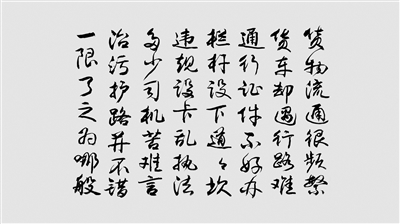 货物流通很频繁
货车却遇行路难
通行证件不好办
栏杆设下道々坎
违规设卡乱执法
多少司机苦难言
治污护路并不错
一限了之为哪般